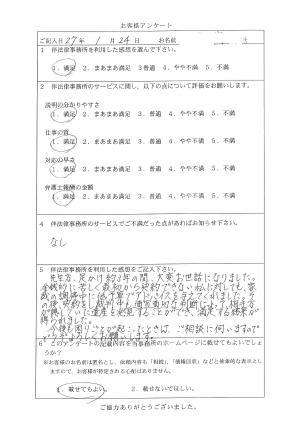 お客様アンケート
ご記入日 27年 1月 24日 お名前
1 伴法律事務所を利用した感想を選んで下さい。
1．満足 2．まあまあ満足 3普通 4．やや不満 5．不満
2 伴法律事務所のサービスに関し、以下の点について評価をお願いします。
説明の分かりやすさ
1．満足 2．まあまあ満足 3．普通 4．やや不満 5．不満
仕事の質
1．満足 2．まあまあ満足 3．普通 4．やや不満 5．不満
対応の早さ
1．満足 2．まあまあ満足 3．普通 4．やや不満 5．不満
弁護士報酬の金額
1．満足 2．まあまあ満足 3．普通 4．やや不満 5．不満
4 伴法律事務所のサービスでご不満だった点があればお知らせ下さい。
なし
5 伴法律事務所を利用した感想をご記入下さい。
先生方、足かけ約3年の間、大変お世話になりました。
金銭的に苦しく最初から契約できない私に対しても、家
裁の調停中に低予算でアドバイスを与えてくれました。そ
の後契約をし、裁判中も適切な判断によって相手方
が隠していた遺産を発見することができ、満足する結果が
得られました。
今後も困りごとが起こったときは、ご相談に伺いますので
6 このアンケートの記載内容を当事務所のホームページに載せてもよいでしょ
うか？
※お客様のお名前は匿名とし、依頼内容も「相続」、「債権回収」などと抽象的な表示とし
ますので、お客様が特定される心配はありません。
1．載せてもよい。 2．載せないでほしい。
ご協力ありがとうございました。